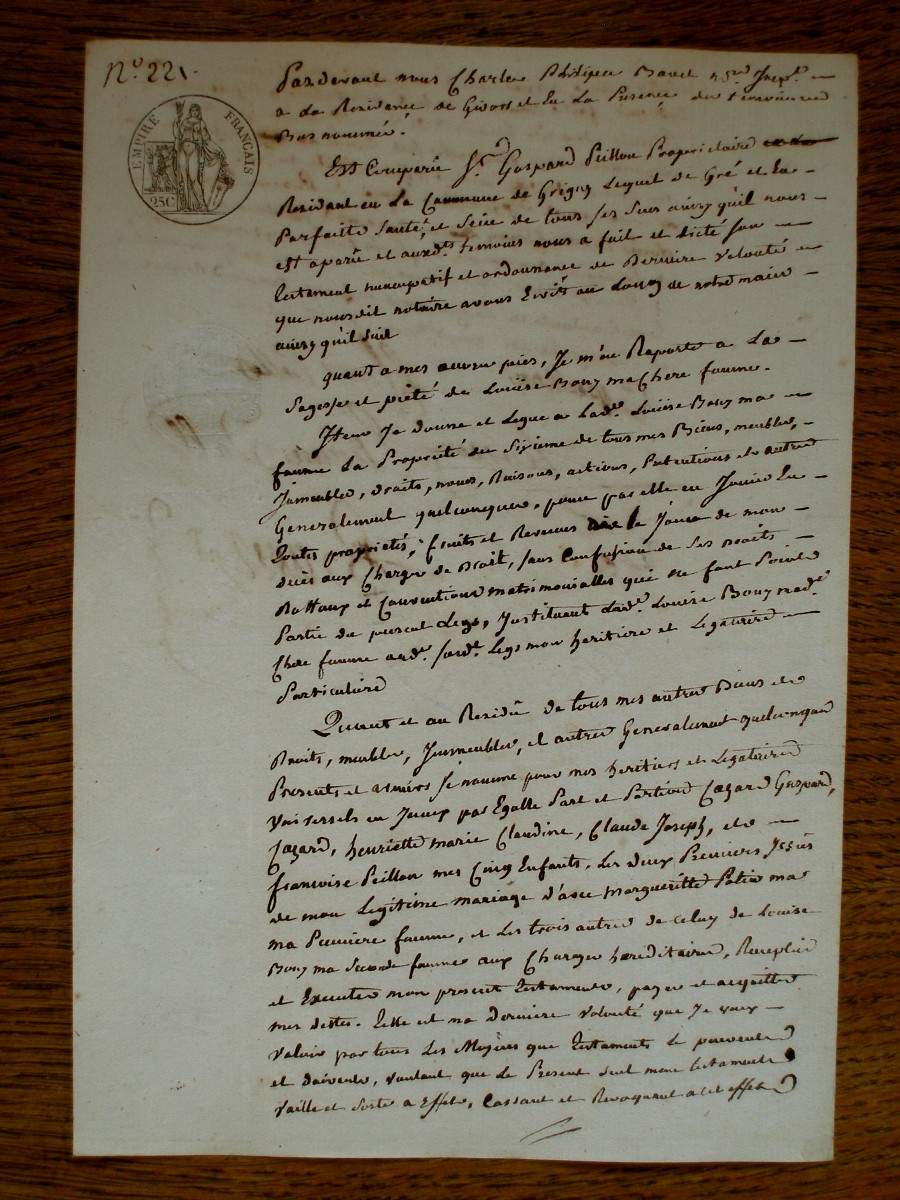 N.º 221.
EMPIRE FRANÇAIS
25C
Pardevant nous Charles Philippe Banet not.re Imp.l
a La Residance de Givors et En La Presence des temoins
Bas nommés.
Est Comparu S.r Gaspard Peillon Propriétaire
Residant en La Commune de Grigny Lequel de Gré et En
Parfaitte Santé, et Seine de tous ses Sens ainsy qu'il nous
est aparû et auxd.ts temoins nous a fait et dicté son
testament nuncupatif et ordonnance de Derniere volonté
que nousdit notaire avons Ecrit au Long de notre main
ainsy qu'il suit
quant a mes œuvres pies, Je m'en Raporte a La
Sagesse et piété de Louise Bouy ma Chere femme.
Item Je donne et Legue a Lad.e Louise Bouy ma
femme La Propriété du Sixieme de tous mes Biens, meubles,
Immeubles, droits, noms, Raisons, actions, Pretentions et autres
Generalement quelconques, pour par elle en Jouir En
toutes propriétés, fruits et Revenus Le Jour de mon
decès aux Charges de Droit, sans Confusion de Ses Droits
Dottaux et Conventions matrimoniales qui ne font Point
Partie du present Legs, Instituant Lad.e Louise Bouy mad.e
Chere femme aud. Legs mon heritiere et Legataire
Particuliere
Quant et au Residû de tous mes autres Biens et
Droits, meubles, Immeubles, et autres Generalement quelconques
Presents et avenirs Je nomme pour mes heritiers et Legataires
Universels en Jceux par Egalle Part et Portions Cazard Gaspard,
Cazard, henriette marie Claudine, Claude Joseph, et
françoise Peillon mes Cinq Enfants, Les deux Premiers Jssus
de mon Legitime mariage d'avec margueritte ma
ma Premiere femme, et Les trois autres de Celuy de Louise
Bouy ma Seconde femme aux Charges hereditaires, Remplir
et Executer mon present testament, payer et acquitter
mes dettes. telle est ma derniere volonté que Je veux
valoir par tous Les Moyens que testaments Le peuvent
et doivent, voulant que Le Present soit mon testament
vaille et sorte a Effet, Cassant et Revoquant a cet effet